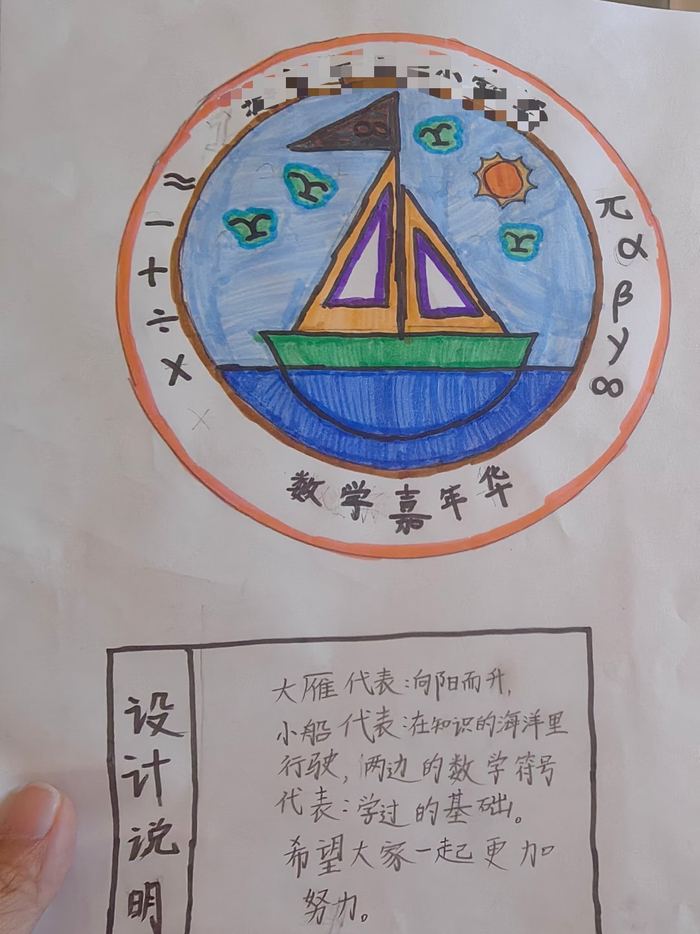 ≈
－
＋
÷
×
π
α
β
γ
∞
∞
数学嘉年华
设计说明
大雁代表：向阳而升，
小船代表：在知识的海洋里
行驶，两边的数学符号
代表：学过的基础。
希望大家一起更加
努力。